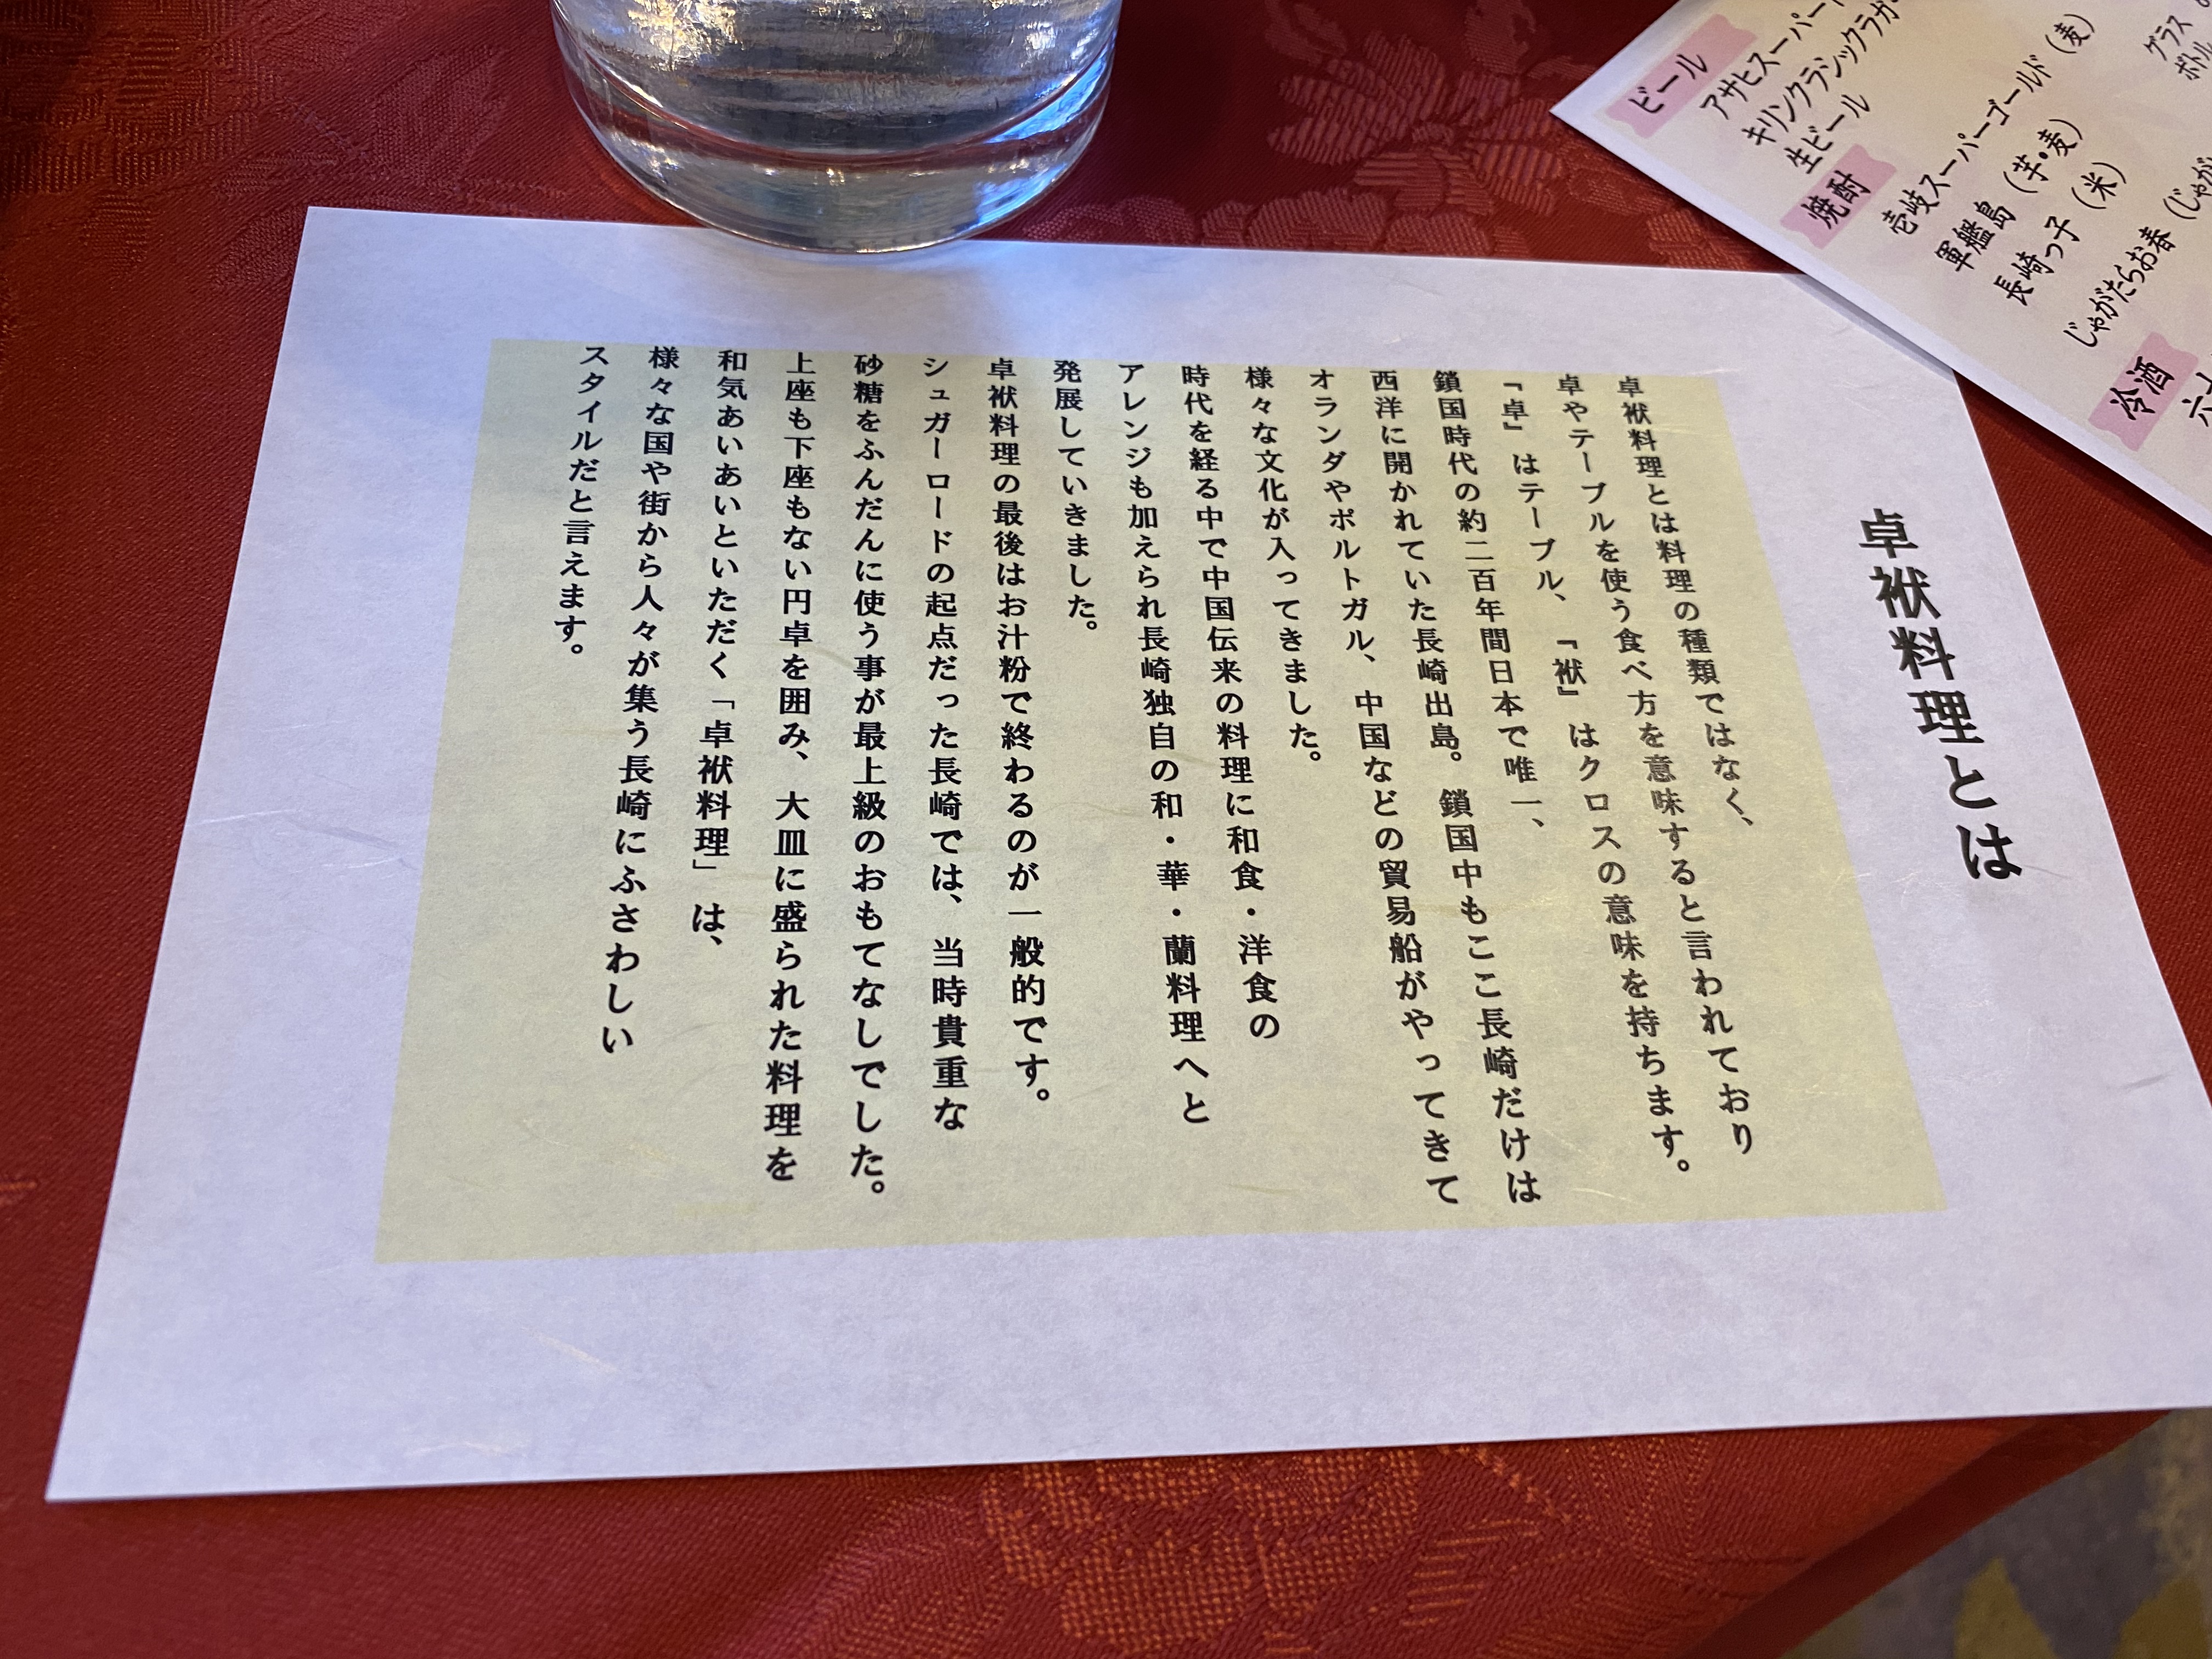 卓袱料理とは
卓袱料理とは料理の種類ではなく、
卓やテーブルを使う食べ方を意味すると言われており
『卓』はテーブル、『袱』はクロスの意味を持ちます。
鎖国時代の約二百年間日本で唯一、
西洋に開かれていた長崎出島。鎖国中もここ長崎だけは
オランダやポルトガル、中国などの貿易船がやってきて
様々な文化が入ってきました。
時代を経る中で中国伝来の料理に和食・洋食の
アレンジも加えられ長崎独自の和・華・蘭料理へと
発展していきました。
卓袱料理の最後はお汁粉で終わるのが一般的です。
シュガーロードの起点だった長崎では、当時貴重な
砂糖をふんだんに使う事が最上級のおもてなしでした。
上座も下座もない円卓を囲み、大皿に盛られた料理を
和気あいあいといただく「卓袱料理」は、
様々な国や街から人々が集う長崎にふさわしい
スタイルだと言えます。
ビール
アサヒスーパー
キリンクラシックラガ
生ビール
焼酎
壱岐スーパーゴールド（麦）
軍艦島（芋・麦）
長崎っ子（米）
じゃがたらお春（じゃが
冷酒
グラス
ボトル